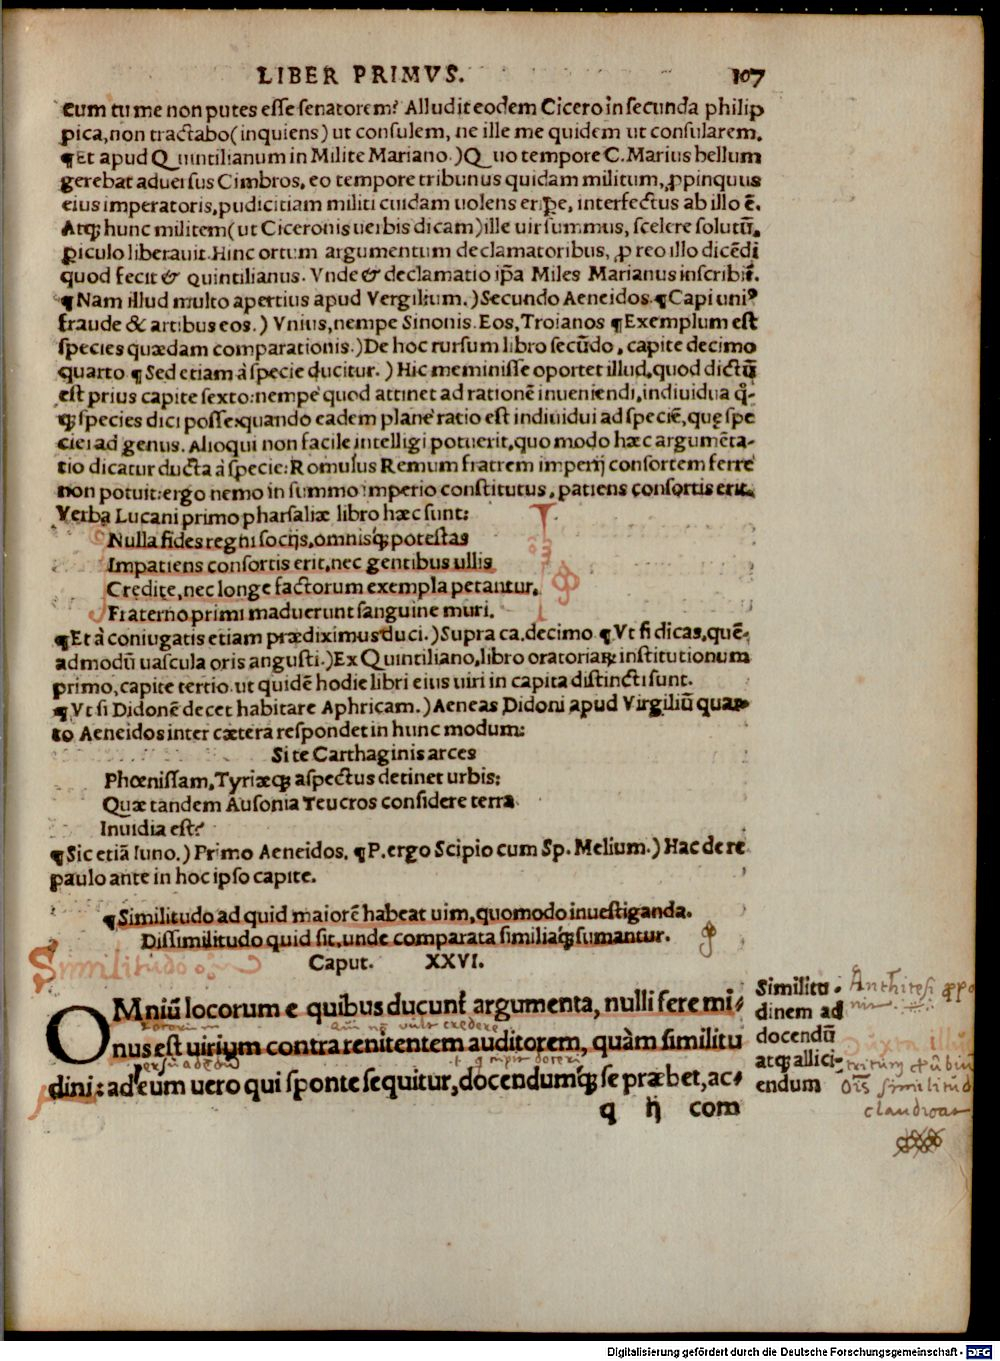 LIBER PRIMVS. 107
cum tu me non putes esse senatorem? Alludit eodem Cicero in secunda philip
pica, non tractabo (inquiens) ut consulem, ne ille me quidem ut consularem.
¶Et apud Quintilianum in Milite Mariano.) Quo tempore C. Marius bellum
gerebat aduersus Cimbros, eo tempore tribunus quidam militum, ꝓpinquus
eius imperatoris, pudicitiam militi cuidam uolens eriꝑe, interfectus ab illo ē.
Atqꝫ hunc militem (ut Ciceronis uerbis dicam) ille uir summus, scelere solutū,
ꝑiculo liberauit. Hinc ortum argumentum declamatoribus, ꝓ reo illo dicēdi
quod fecit & Quintilianus. Vnde & declamatio ip̄a Miles Marianus inscribit̄.
¶Nam illud multo apertius apud Vergilium.) Secundo Aeneidos. ¶Capi uniꝰ
fraude & artibus eos.) Vnius, nempe Sinonis. Eos, Troianos ¶Exemplum est
species quædam comparationis.) De hoc rursum libro secūdo, capite decimo
quarto ¶Sed etiam à specie ducitur.) Hic meminisse oportet illud, quod dictū
est prius capite sexto: nempe quod attinet ad rationē inueniendi, indiuidua q̊-
qꝫ species dici posse: quando eadem plane ratio est indiuidui ad speciē, quę spe
ciei ad genus. Alioqui non facile intelligi potuerit, quo modo hæc argumēta-
tio dicatur ducta à specie: Romulus Remum fratrem imperij consortem ferre
non potuit: ergo nemo in summo imperio constitutus, patiens consortis erit.
Verba Lucani primo pharsaliæ libro hæc sunt:
Nulla fides regni socijs, omnisqꝫ potestas
Impatiens consortis erit, nec gentibus ullis
Credite, nec longe factorum exempla petantur.
Fraterno primi maduerunt sanguine muri.
¶Et à coniugatis etiam prædiximus duci.) Supra ca. decimo. ¶Vt si dicas, quē-
admodū uascula oris angusti.) Ex Quintiliano, libro oratoriaꝝ institutionum
primo, capite tertio. ut quidē hodie libri eius uiri in capita distincti sunt.
¶Vt si Didonē decet habitare Aphricam.) Aeneas Didoni apud Virgiliū quar-
to Aeneidos inter cætera respondet in hunc modum:
Si te Carthaginis arces
Phœnissam, Tyriæqꝫ aspectus detinet urbis:
Quæ tandem Ausonia Teucros considere terra
Inuidia est?
¶Sic etiā Iuno.) Primo Aeneidos. ¶P. ergo Scipio cum Sp. Melium.) Hac de re
paulo ante in hoc ipso capite.
¶Similitudo ad quid maiorē habeat uim, quomodo inuestiganda.
Dissimilitudo quid sit, unde comparata similiaqꝫ sumantur.
Similitudo
Caput. XXVI.
OMniū locorum e quibus ducunt̄ argumenta, nulli fere mi-
nus est uirium contra renitentem auditorem, quàm similitu
dini: ad eum uero qui sponte sequitur, docendumqꝫ se præbet, ac-
q ij com
Similitu-
dinem ad
docendū
atqꝫ allici-
endum